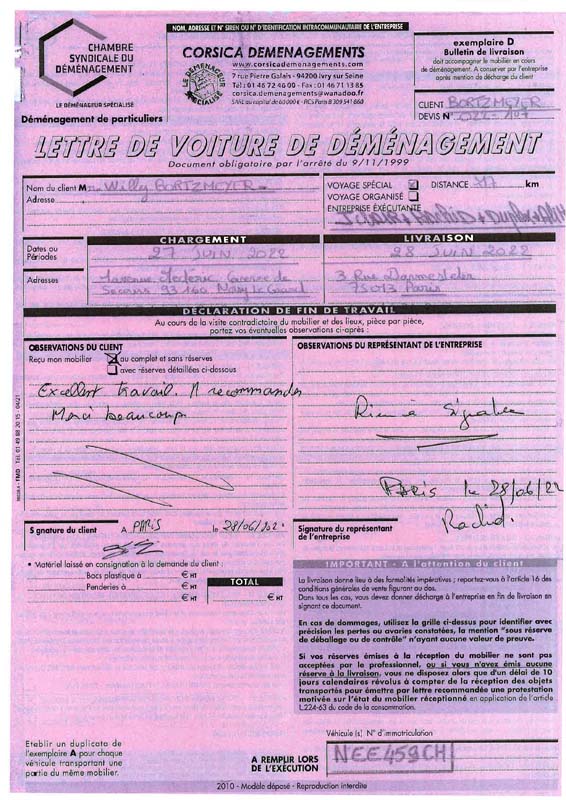 NOM, ADRESSE ET N° SIREN OU N° D'IDENTIFICATION INTRACOMMUNAUTAIRE DE L'ENTREPRISE
CHAMBRE
SYNDICALE DU
DÉMÉNAGEMENT
LE DÉMÉNAGEUR SPÉCIALISÉ
LE DEMENAGEUR
SPECIALISE
CORSICA DEMENAGEMENTS
www.corsicademenagements.com
7 rue Pierre Galais - 94200 Ivry sur Seine
Tel : 01 46 72 46 00 - Fax : 01 46 71 13 85
corsica.demenagements@wanadoo.fr
SARL au capital de 60000 € - RCS Paris B 309 541 664
exemplaire D
Bulletin de livraison
doit accompagner le mobilier en cours
de déménagement. A conserver par l'entreprise
après mention de décharge du client
CLIENT BORTZMEYER
DEVIS N°
Déménagement de particuliers
LETTRE DE VOITURE DE DÉMÉNAGEMENT
Document obligatoire par l'arrêté du 9/11/1999
Nom du client Willy BORTZMEYER
Adresse
VOYAGE SPÉCIAL DISTANCE km
VOYAGE ORGANISÉ
ENTREPRISE EXÉCUTANTE
CHARGEMENT
LIVRAISON
Dates ou
Périodes
27 JUIN 2022
28 JUIN 2022
Adresses
Secours 93160 Noisy Le Grand
3 Rue Darmesteter
75013 Paris
DÉCLARATION DE FIN DE TRAVAIL
Au cours de la visite contradictoire du mobilier et des lieux, pièce par pièce,
portez vos éventuelles observations ci-après :
OBSERVATIONS DU CLIENT
Reçu mon mobilier au complet et sans réserves
avec réserves détaillées ci-dessous
Excellent travail. A recommander
Merci beaucoup
OBSERVATIONS DU REPRÉSENTANT DE L'ENTREPRISE
Rien à Signaler
PARIS le 28/06/22
Rachid.
Signature du client A PARIS le 28/06/202
Signature du représentant
de l'entreprise
• Matériel laissé en consignation à la demande du client :
Bacs plastique à € HT
Penderies à € HT
TOTAL
€ HT
IMPORTANT - A l'attention du client
La livraison donne lieu à des formalités impératives ; reportez-vous à l'article 16 des
conditions générales de vente figurant au dos.
Dans tous les cas, vous devez donner décharge à l'entreprise en fin de livraison en
signant ce document.
En cas de dommages, utilisez la grille ci-dessus pour identifier avec
précision les pertes ou avaries constatées, la mention "sous réserve
de déballage ou de contrôle" n'ayant aucune valeur de preuve.
Si vos réserves émises à la réception du mobilier ne sont pas
acceptées par le professionnel, ou si vous n'avez émis aucune
réserve à la livraison, vous ne disposez alors que d'un délai de 10
jours calendaires révolus à compter de la réception des objets
transportés pour émettre par lettre recommandée une protestation
motivée sur l'état du mobilier réceptionné en application de l'article
L224-63 du code de la consommation.
Etablir un duplicata de
l'exemplaire A pour chaque
véhicule transportant une
partie du même mobilier.
A REMPLIR LORS
DE L'EXÉCUTION
Véhicule (s) N° d'immatriculation
NEE459CH
2010 - Modèle déposé - Reproduction interdite